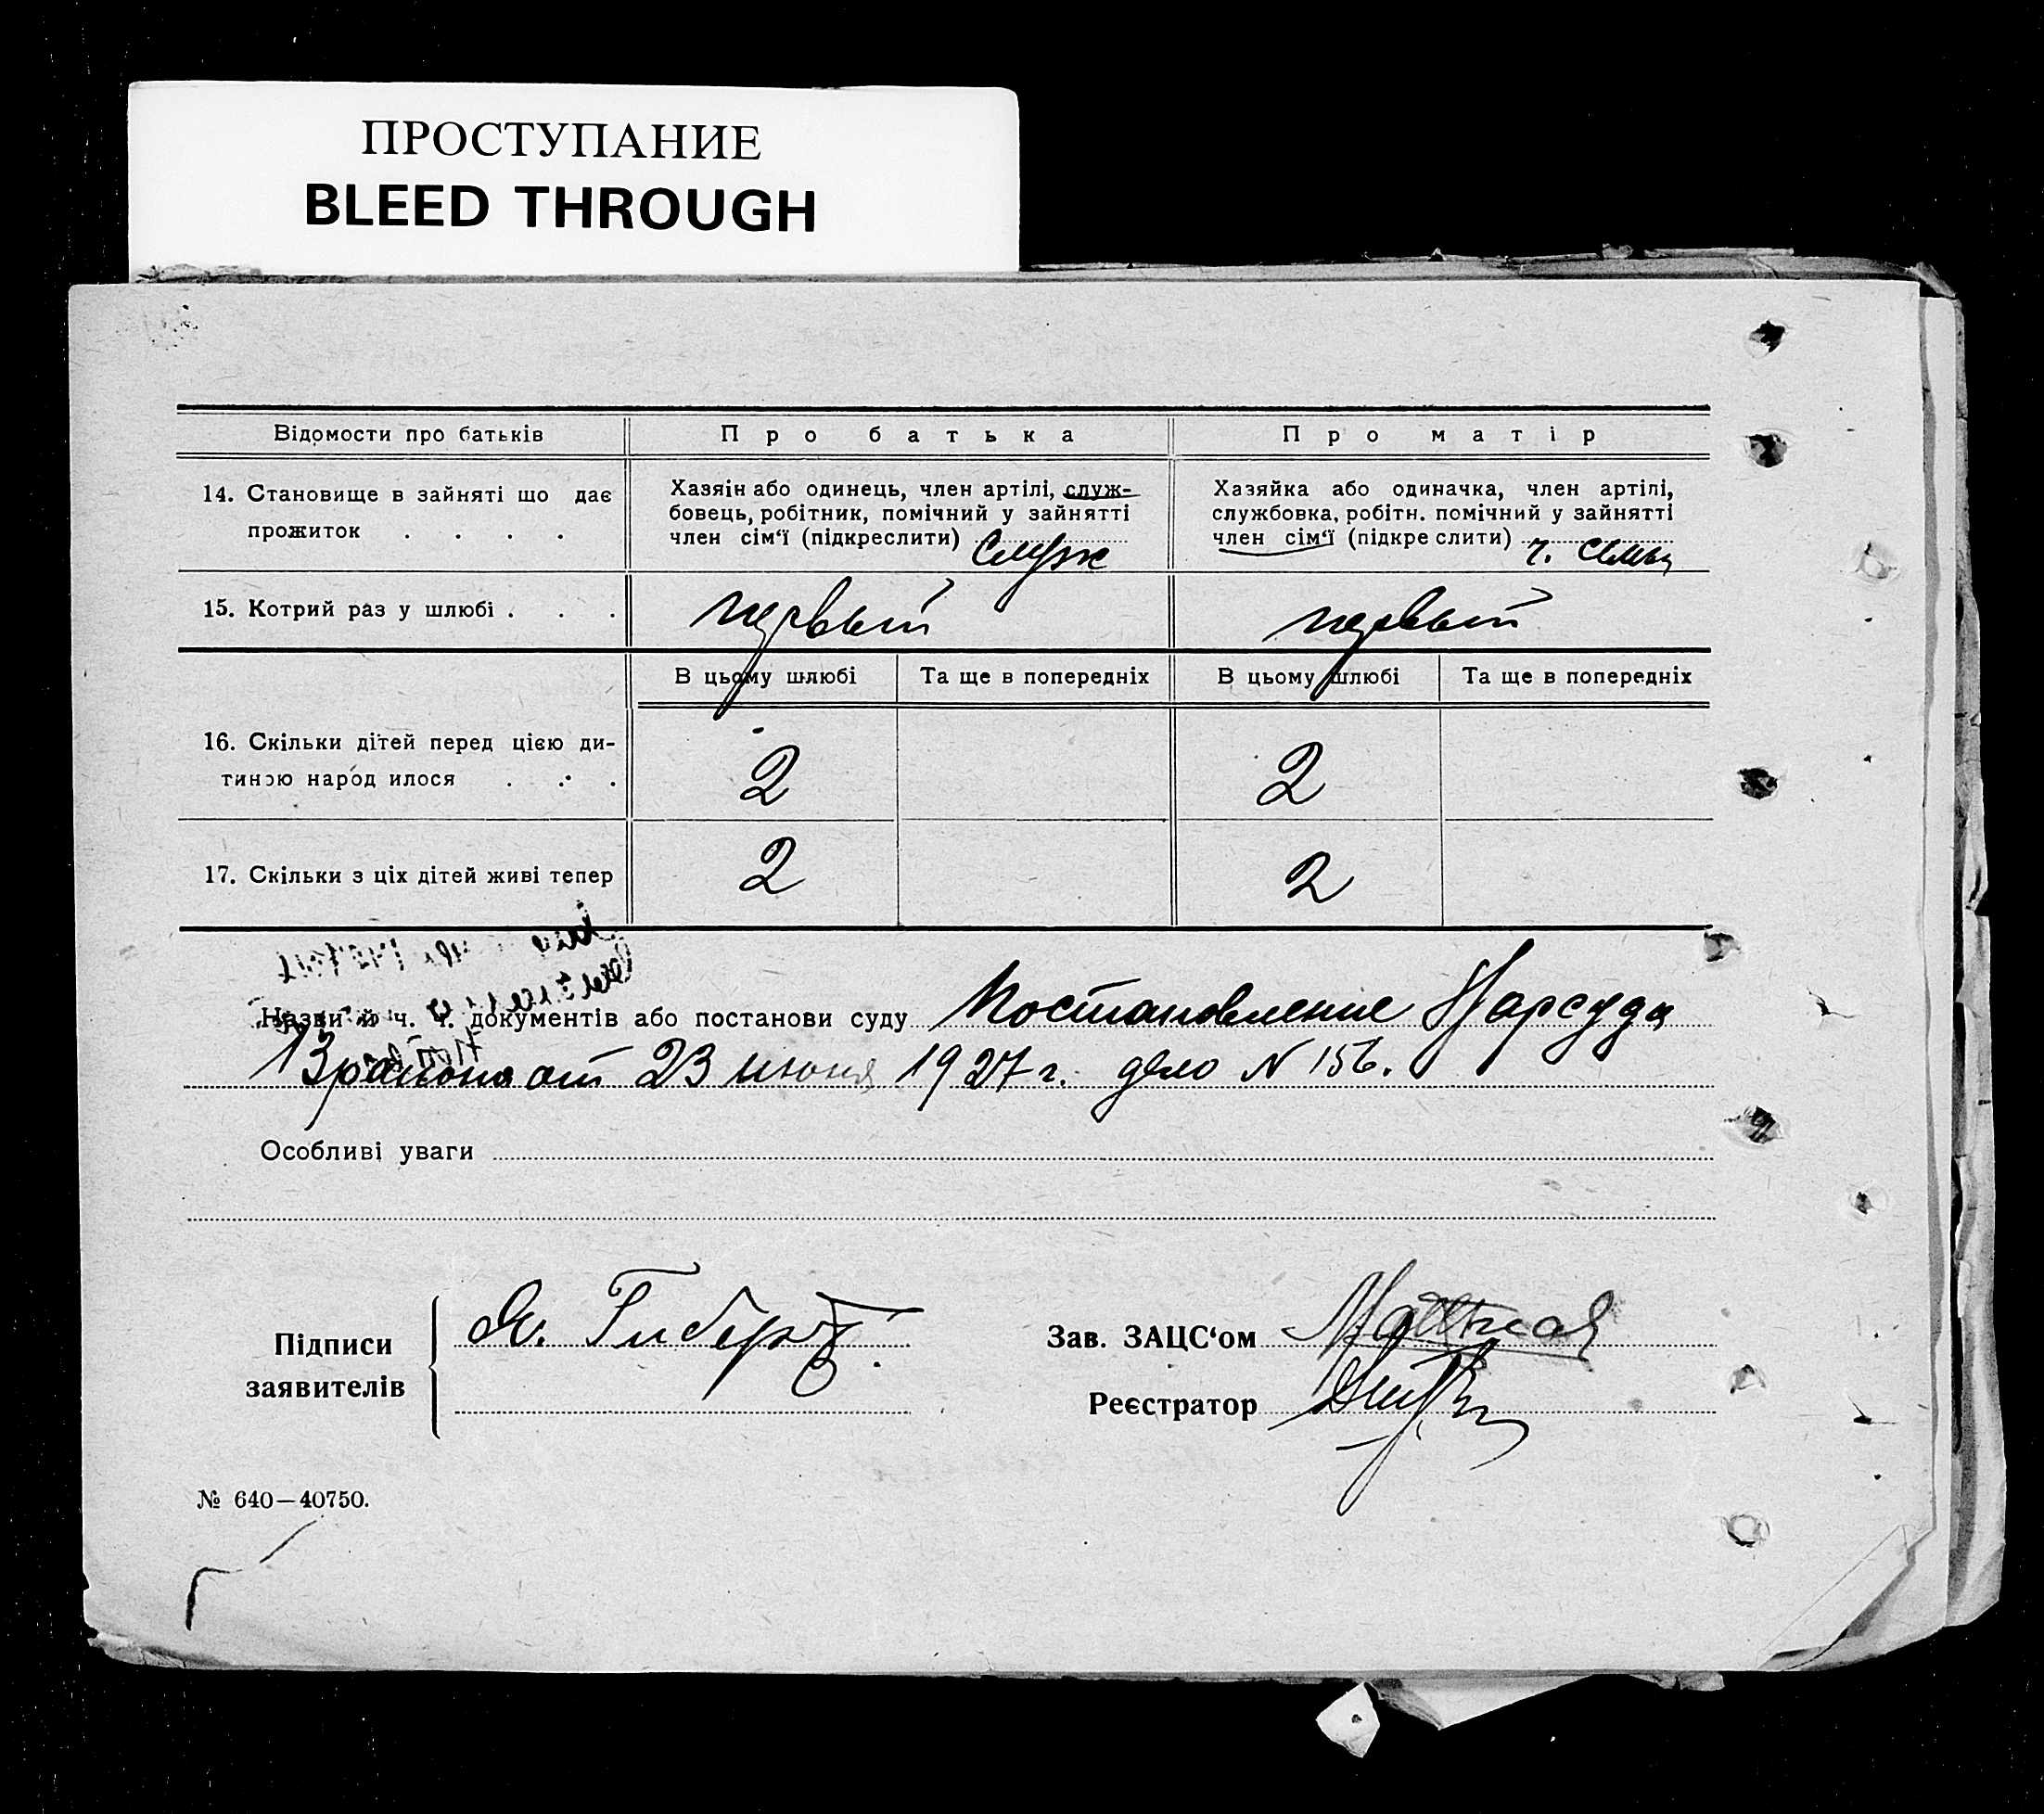 ПРОСТУПАНИЕ
BLEED THROUGH
Відомости про батьків Про батька Про матір
14. Становище в зайняті шо дає прожиток . . . .
Хазяін або одинець, член артілі, служ-
бовець, робітник, помічний у зайнятті
член сім'ї (підкреслити) Служ
Хазяйка або одиначка, член артілі,
службовка, робітн. помічний у зайнятті
член сім'ї (підкре слити) ч. семьи
15. Котрий раз у шлюбі . . . первый первый
В цьому шлюбі Та ще в попередніх В цьому шлюбі Та ще в попередніх
16. Скільки дітей перед цією ди-
тиною народ илося . . . 2 2
17. Скільки з ціх дітей живі тепер 2 2
Назви й ч. ч. документів або постанови суду Постановление Нарсуда
13 района от 23 июня 1927 г. дело N 156.
Особливі уваги
Підписи
заявителів
Зав. ЗАЦС'ом
Реєстратор
№ 640—40750.